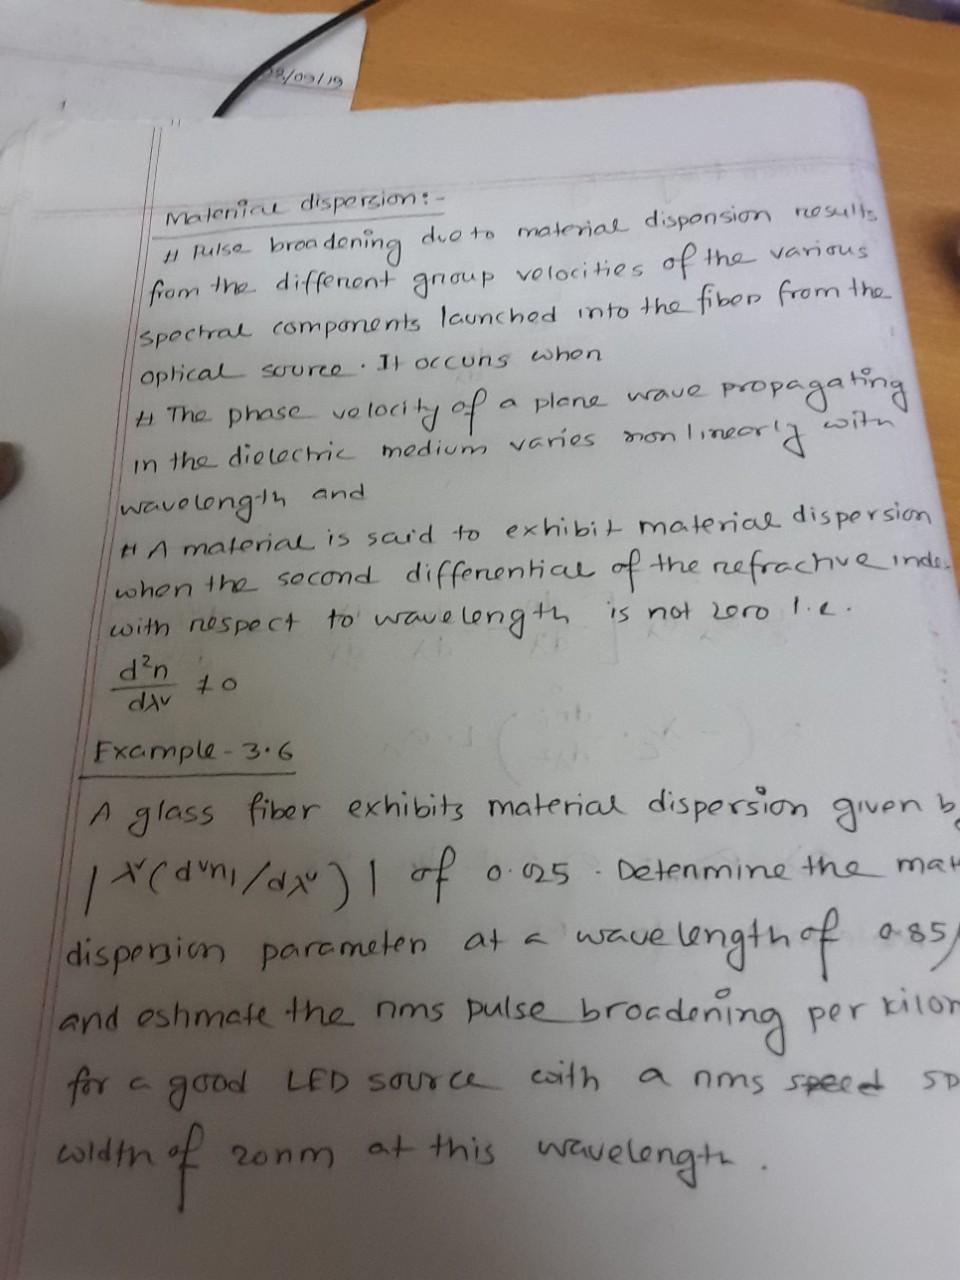 09/19
Material dispersion:-
# Pulse broadening due to material dispension results
from the different group velocities of the various
spectral components launched into the fiber from the
optical source. It occurs when
# The phase velocity of a plane wave propagating
in the dielectric medium varies nonlinearly with
wavelength and
# A material is said to exhibit material dispersion
when the second differential of the refractive inde
with respect to wavelength is not zero i.e.
d²n/dλ² ≠ 0
Example-3.6
A glass fiber exhibits material dispersion given b
|λ²(d²n₁/dλ²)| of 0.025. Determine the mat
dispersion parameter at a wavelength of 0.85
and estimate the rms pulse broadening per kilom
for a good LED source with a rms sp
width of 20nm at this wavelength.